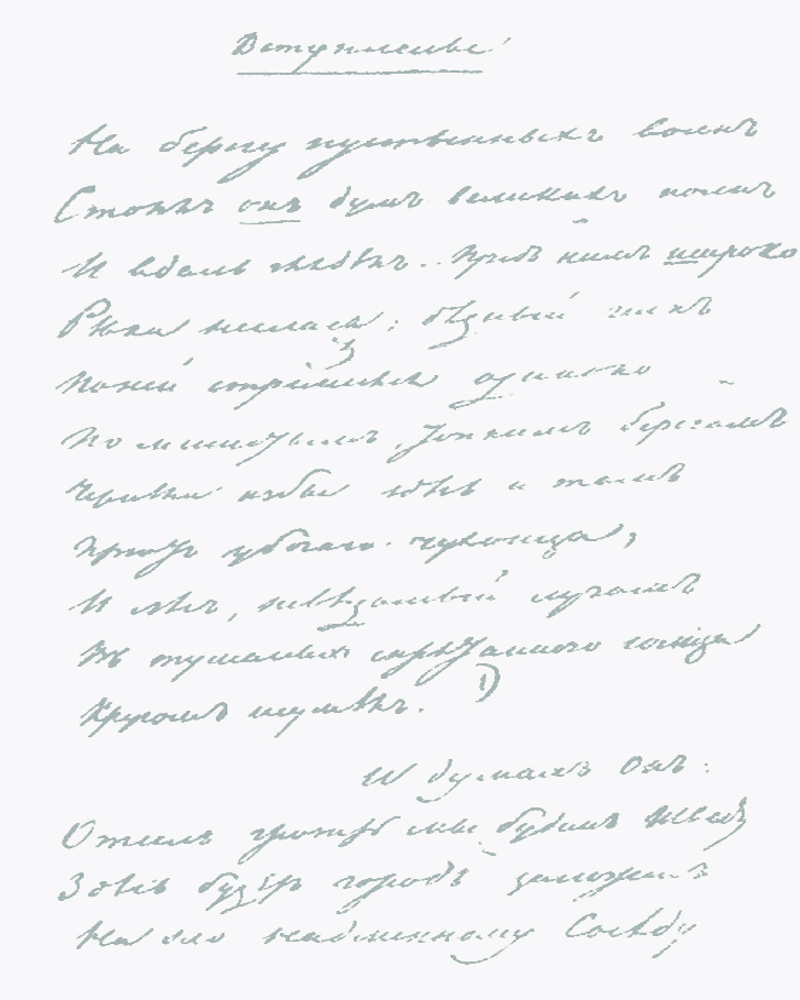 Вступленье
На берегу пустынныхъ волнъ
Стоялъ онъ думъ великихъ полнъ
И вдаль глядѣлъ.. Предъ нимъ широко
Рѣка неслася; бѣдный челнъ
По ней стремился одиноко
По мшистымъ, топкимъ берегамъ
Чернѣли избы здѣсь и тамъ
Пріютъ убогаго чухонца;
И лѣсъ, невѣдомый лучамъ
Въ туманѣ спрятаннаго солнца
Кругомъ шумѣлъ. 1)
И думалъ Онъ:
Отсель грозить мы будемъ Шведу
Здѣсь будетъ городъ заложенъ
На зло надменному Сосѣду